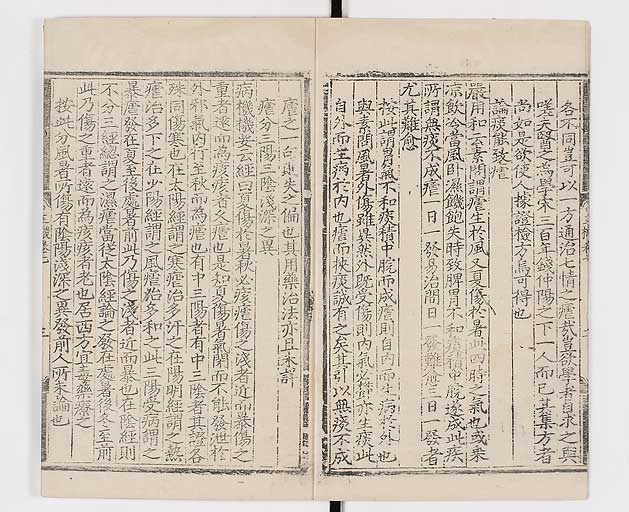 各不同豈可以一方通治七情之瘧哉豈欲學者自求之與
嗟夫醫之爲學宋三百年錢仲陽之下一人而已其集方者
尚如是欲使人據證檢方焉可得也
論痰能致瘧
嚴用和云素問謂瘧生於風又夏傷於暑此四時之氣也或乘
凉飮冷當風卧濕饑飽失時致脾胃不和痰積中脘遂成此疾
所謂無痰不成瘧一日一發易治間日一發難愈三日一發者
尤其難愈
按此謂胃氣不和痰積中脘而成瘧則自內而一病於外也
與素問風暑外傷雖異然外旣受傷則內氣亦生痰此
自外而生病於內也瘧而挾痰誠有之矣其引以無痰不成
瘧之一句則失之偏也其用藥治法亦且未詳
瘧分三陽三陰淺深之異
病機機要云經曰夏傷於暑秋必痎瘧傷之淺者近而暴傷之
重者遠而爲痎痎者久瘧也是知夏傷暑氣閉而不能發泄於
外邪氣內行至秋而爲瘧也有中三陽者有中三陰者其證各
殊同傷寒也在太陽經謂之寒瘧治多汗之在陽明經謂之熱
瘧治多下之在少陽經謂之風瘧治多和之此三陽受病謂之
暴瘧發在夏至後處暑前此乃傷之淺者近而暴也在陰經則
不分三經總謂之濕瘧當從太陰經論之發在處暑後冬至前
此乃傷之重者遠而爲痎痎者老也居西方宜毒藥療之
按此分風暑所傷有陰陽淺深之異發前人所未論也